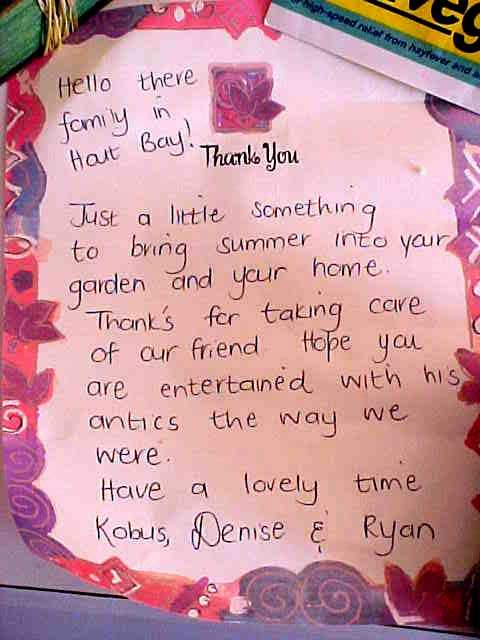 veg
high-speed relief from hayfever and
Hello there
family in
Hout Bay!
Thank You
Just a little something
to bring summer into your
garden and your home.
Thank's for taking care
of our friend. Hope you
are entertained with his
antics the way we
were.
Have a lovely time
Kobus, Denise & Ryan